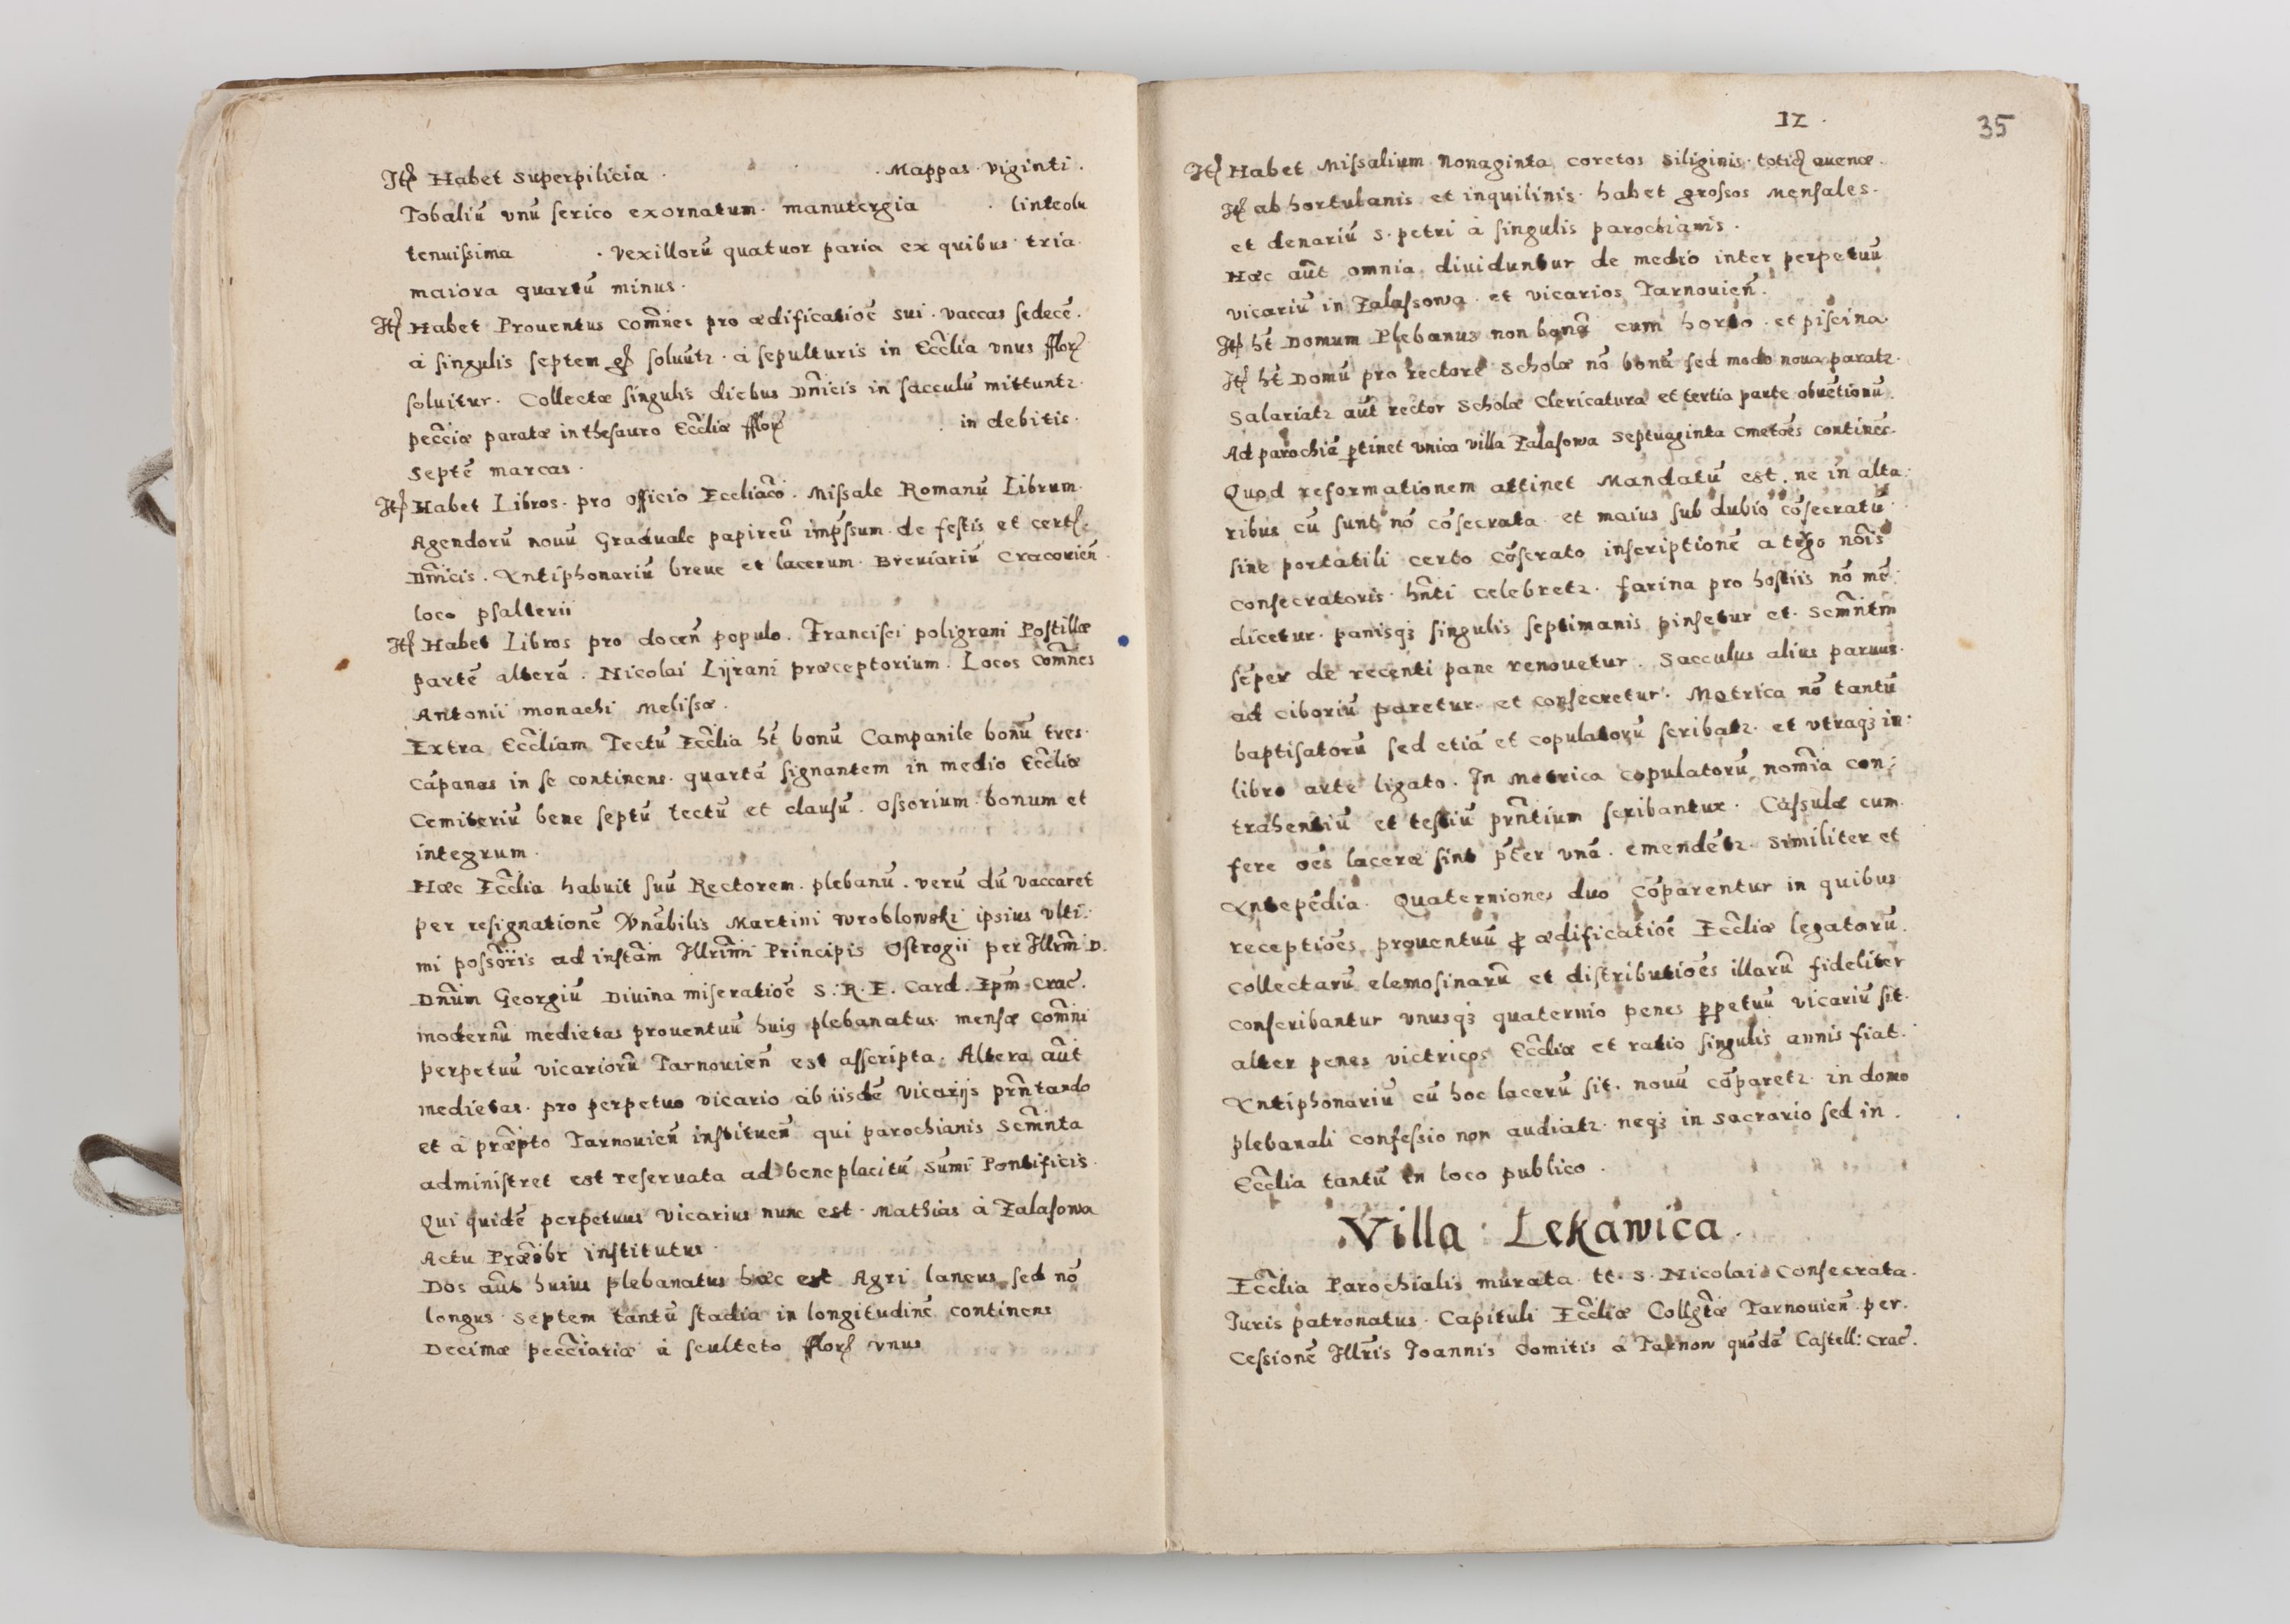 Itẽ Habet superpilicia . . Mappas viginti .
Tobaliũ vnũ serico exornatum . manutergia . linteola
tenuissima . vexillorũ quatuor paria ex quibus tria
maiora quartũ minus .
Itẽ Habet Prouentus com̃nes pro ædificatiõe sui . vaccas sedecẽ .
à singulis septem gr̃ soluũtr . à sepulturis in Eccl̃ia vnus fflor̃
soluitur . Collectæ singulis diebus Dñicis in sacculũ mittuntr .
pecc̃iæ paratæ in thesauro Eccl̃iæ fflor̃ . in debitis .
septẽ marcas .
Itẽ Habet Libros . pro officio Eccliãco . Missale Romanũ Librum
Agendorũ nouũ Graduale papireũ imp̃ssum . de festis et cert̃
Dñicis . Antiphonariũ breue et lacerum . Breuiariũ Cracouieñ
loco psalterii
Itẽ Habet Libros pro doceñ populo . Francisci poligrani Postillæ
partẽ alterã . Nicolai Lijrani præceptorium . Locos com̃nes
Antonii monachi Melissæ .
Extra Eccl̃iam Tectũ Eccl̃ia ht̃ bonũ Campanile bonũ tres
cãpanas in se continens . quartã signantem in medio Eccl̃iæ
Cemiteriũ bene septũ tectũ et clausũ . ossorium bonum et
integrum .
Hæc Eccl̃ia habuit suũ Rectorem . plebanũ . verũ dũ vaccaret
per resignationẽ Vñabilis Martini Wroblowski ipsius vlti:
mi possor̃is ad instãm Illrim̃i Principis Ostrogii per Illrm̃ D.
Dnũm Georgiũ Diuina miseratiõe S. R. E. Card. Ep̃m Crac̃.
modernũ medietas prouentuũ huig plebanatus mensæ com̃ni
perpetuũ vicariorũ Tarnouieñ est asscripta . Altera aũt
medietas . pro perpetuo vicario ab iisdẽ vicarijs prñtando
et à præp̃to Tarnouieñ instituẽñ qui parochianis Sc̃mnta
administret est reseruata ad beneplacitũ sũmi Pontificis .
Qui quidẽ perpetuus vicarius nunc est . Mathias à Zalasowa
Actu Præsbr̃ institutus .
Dos aũt huius plebanatus hæc est Agri laneus sed nõ
longus septem tantũ stadia in longitudinẽ continens
Decimæ pecc̃iariæ à sculteto fflor̃ vnus
12 .
35
Itẽ Habet Missalium nonaginta coretos siliginis . totiq̃ auenæ .
Itẽ ab hortulanis et inquilinis . habet grossos mensales .
et denariũ S. petri à singulis parochianis .
Hæc aũt omnia diuiduntur de medio inter perpetuũ
vicariũ in Zalassowa et vicarios Tarnouieñ .
Itẽ ht̃ Domum Plebanus non bonã cum horto . et piscina
Itẽ ht̃ Domũ pro rectore scholæ nõ bonã sed modo noua paratr .
Salariatr aũt rector scholæ Clericatura et tertia parte obuẽtionũ .
Ad parochiã ptinet vnica villa Zalasowa septuaginta cmetões continẽs .
Quod reformationem attinet Mandatũ est . ne in alta:
ribus cũ sunt nõ cõsecrata et maius sub dubio cõsecratũ
sine portatili certo cõserato inscriptionẽ a tergo nõis
consecratoris hñti celebretr . farina pro hostiis nõ mẽ:
dicetur . panisqз singulis septimanis pinsetur et . Sc̃mntm̃
sẽper de recenti pane renouetur . Sacculus alius paruus
ad ciboriũ paretur . et consecretur . Metrica nõ tantũ
baptisatorũ sed etiã et copulatorũ scribatr . et vtraqз in
libro arte ligato . In metrica copulatorũ nomĩa con:
trahentiũ et testiũ prñtium scribantur . Cassulæ cum
fere oẽs laceræ sint p̃ter vnã . emendẽtr . Similiter et
Antepẽdia . Quaterniones duo cõparentur in quibus
receptiões prouentuũ p ædificatiõe Eccl̃iæ legatorũ .
collectarũ elemosinarũ et distributiões illarũ fideliter
conscribantur vnusqз quaternio penes ppetuũ vicariũ sit .
alter penes victricos Eccl̃iæ et ratio singulis annis fiat .
Antiphonariũ cũ hoc lacerũ sit . nouũ cõparetr . in domo
plebanali confessio non audiatr . neqз in sacrario sed in .
Eccl̃ia tantũ in loco publico .
Villa Lekawica .
Eccl̃ia Parochialis murata tt. S. Nicolai Consecrata .
Iuris patronatus . Capituli Eccl̃iæ Collgt̃æ Tarnouieñ per .
Cessionẽ Illr̃is Ioannis Comitis à Tarnow quõdã Castell: Crac̃ .